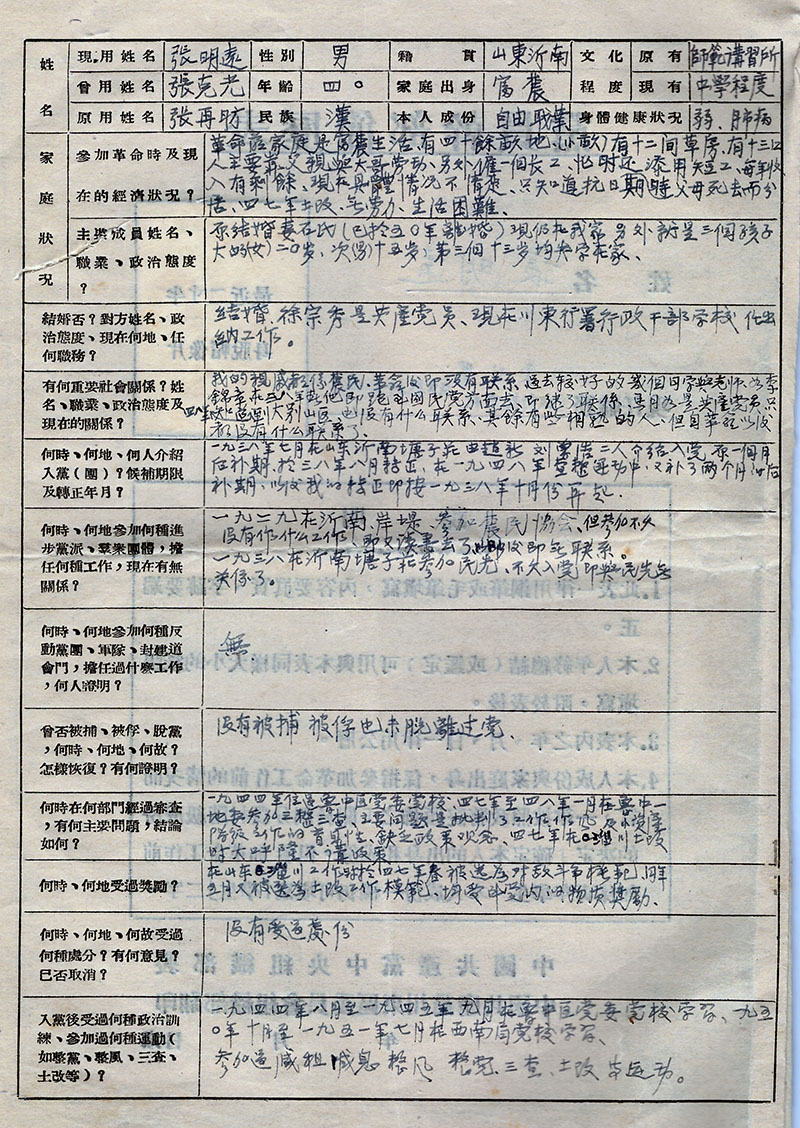 姓名 現用姓名 張明遠 性別 男 籍貫 山東沂南 文化程度 原有 師範講習所
曾用姓名 張克光 年齡 四〇 家庭出身 富農 現有 中學程度
原用姓名 張再昉 民族 漢 本人成份 自由職業 身體健康狀況 弱、肺病
家庭狀況
參加革命時及現
在的經濟狀況？
革命前家庭是富農生活，有四十餘畝地，(小畝)有十二间草房，有十三口
人主要靠父親與大哥劳动，另外僱一個長工，忙时还添用短工，每年收
入有剩餘、現在具體情况不清楚、只知道抗日期時父母死去而分
居、四七年土改、無勞力、生活困難。
主要成員姓名、
職業、政治態度
？
原结婚妻石氏(已於五〇年離婚)現仍在我家另外就是三個孩子
大的(女)二〇岁、次(男)十五岁、第三個十三岁均失学在家、
結婚否？對方姓名、政
治態度、現在何地、任
何職務？
结婚、徐宗秀是共產党员、現在川東行署行政干部学校作出
纳工作。
有何重要社會關係？姓
名、職業、政治態度及
現在的關係？
我的親戚都係農民、革命後即没有联系、过去较好的幾個同学與老师如李
三八年其他即跑到國民党方面去、即绝了联係、
都没有什么联系了。
何時、何地、何人介紹
入黨（團）？候補期限
及轉正年月？
一九三八年七月在山东沂南塘子庄由趙 刘 二人介绍入党、原一個月
后补期、於三八年八月轉正、在一九四八年整党運动中、又补了两个月的后
补期、以後我的轉正即按一九三八年十月份算起、
何時、何地參加何種進
步黨派、羣衆團體，擔
任何種工作，現在有無
關係？
一九二九在沂南、岸堤、参加農民協会、但参加不久
没有作什么工作、即又读書去了、此後即無联系。
一九三八在沂南塘子在参加民先、不久入党即與民先無
关係了。
何時、何地參加何種反
動黨團、軍隊、封建道
會門，擔任過什麽工作
，何人證明？
無
曾否被捕、被俘、脫黨
，何時、何地、何故？
怎樣恢復？有何證明？
没有被捕 被俘也未脱離过党、
何時在何部門經過審查
，有何主要問題，結論
如何？
一九四四年在魯中区党委党校、四七年至四八年一月在魯中一
地委参加三整三查、主要问题是批判了工作作风及
階级 的盲目性、缺乏政策观念、四七年在 川土改
时大呼隆不講政策
何時、何地受過獎勵？
在山东 川工作时於四七年春被选为对敌斗爭模範、同年
五月又被选为土改工作模範、均受 物质奖励、
何時、何地、何故受過
何種處分？有何意見？
已否取消？
没有受過處份
入黨後受過何種政治訓
練、參加過何種運動（
如整黨、整風、三查、
土改等）？
一九四四年八月至一九四五年九月在魯中区党委党校学習、一九五
〇年十月至一九五一年七月在西南局党校学習、
参加過减租减息整风 整党、三查、土改等运动。